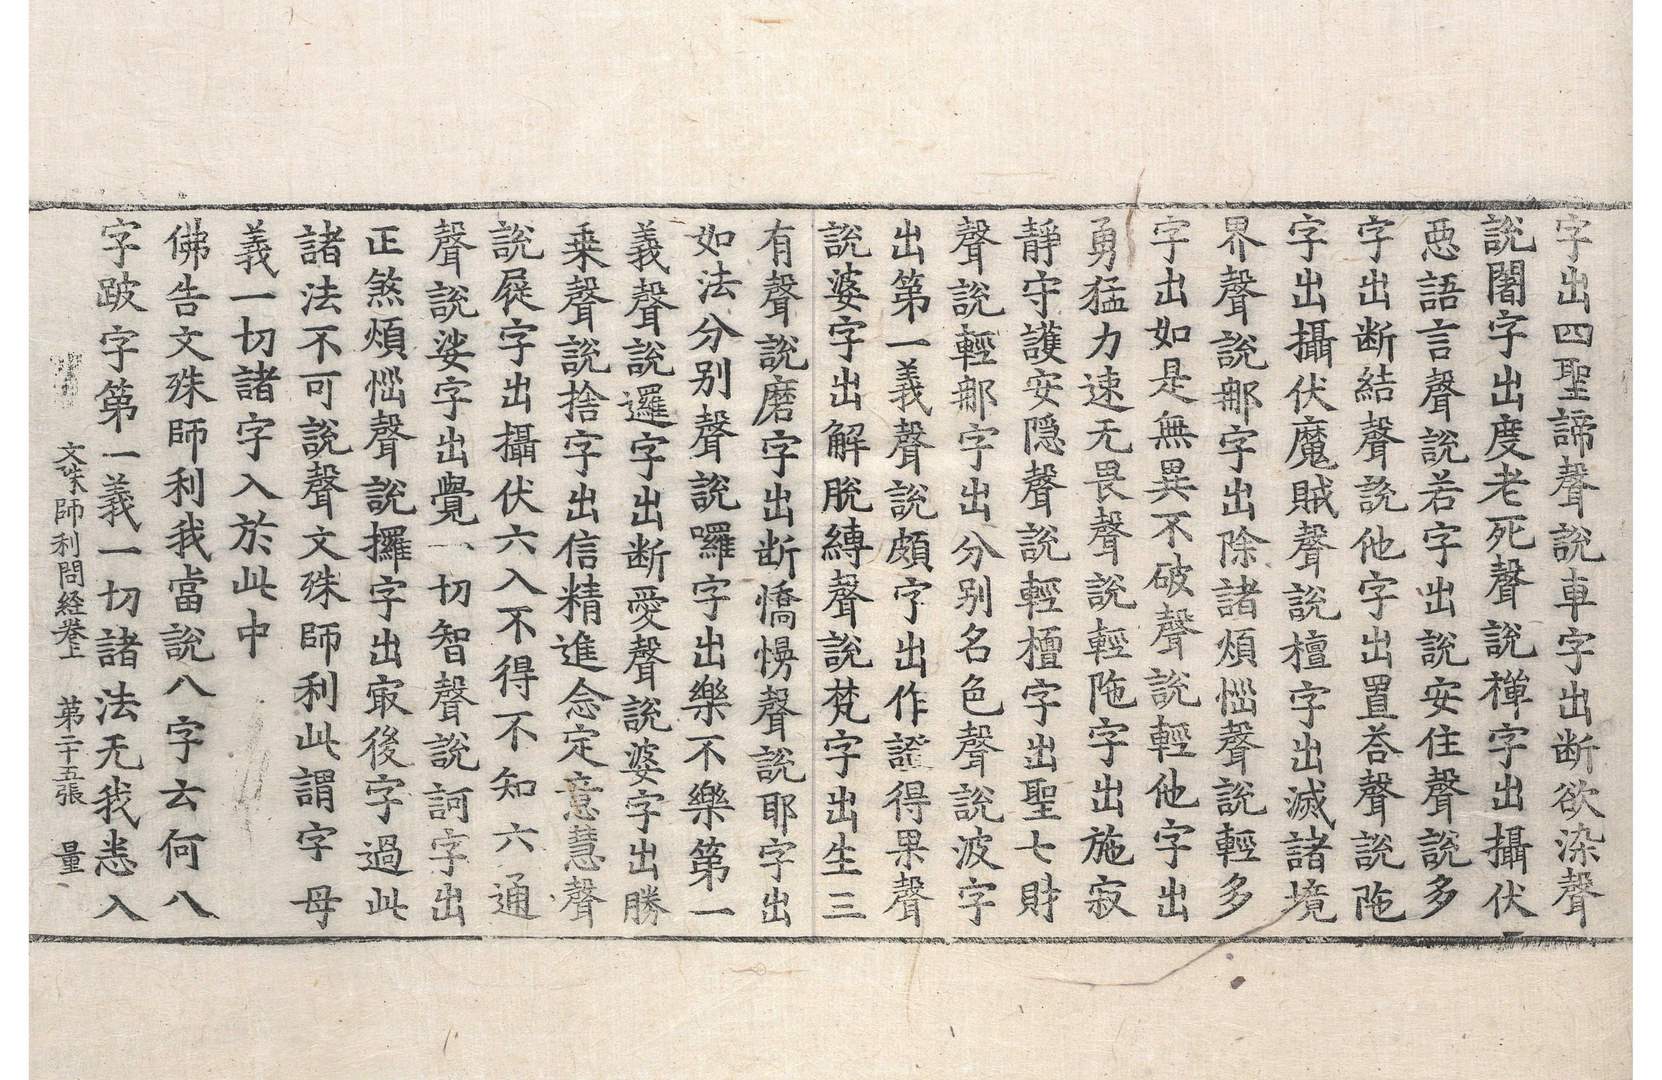 字出四聖諦聲說車字出断欲染聲
說闍字出度老死聲說禪字出攝伏
惡語言聲說若字出說安住聲說多
字出断結聲說他字出置荅聲說陁
字出攝伏魔賊聲說檀字出滅諸境
界聲說那字出除諸煩惱聲說輕多
字出如是無異不破聲說輕他字出
勇猛力速无畏聲說輕陁字出施寂
靜守護安隐聲說輕檀字出聖七財
聲說輕那字出分别名色聲說波字
出第一義聲說頗字出作證得果聲
說婆字出解脫縛聲說梵字出生三
有聲說磨字出断憍慢聲說耶字出
如法分别聲說囉字出樂不樂第一
義聲說邏字出断愛聲說婆字出勝
乗聲說捨字出信精進念定意慧聲
說屣字出攝伏六入不得不知六通
聲說娑字出覺一切智聲說訶字出
正煞煩惱聲說攞字出㝡後字過此
諸法不可說聲文殊師利此謂字母
義一切諸字入於此中
佛告文殊師利我當說八字云何八
字跛字第一義一切諸法无我悉入
文殊師利問経巻上 第二十五張 量